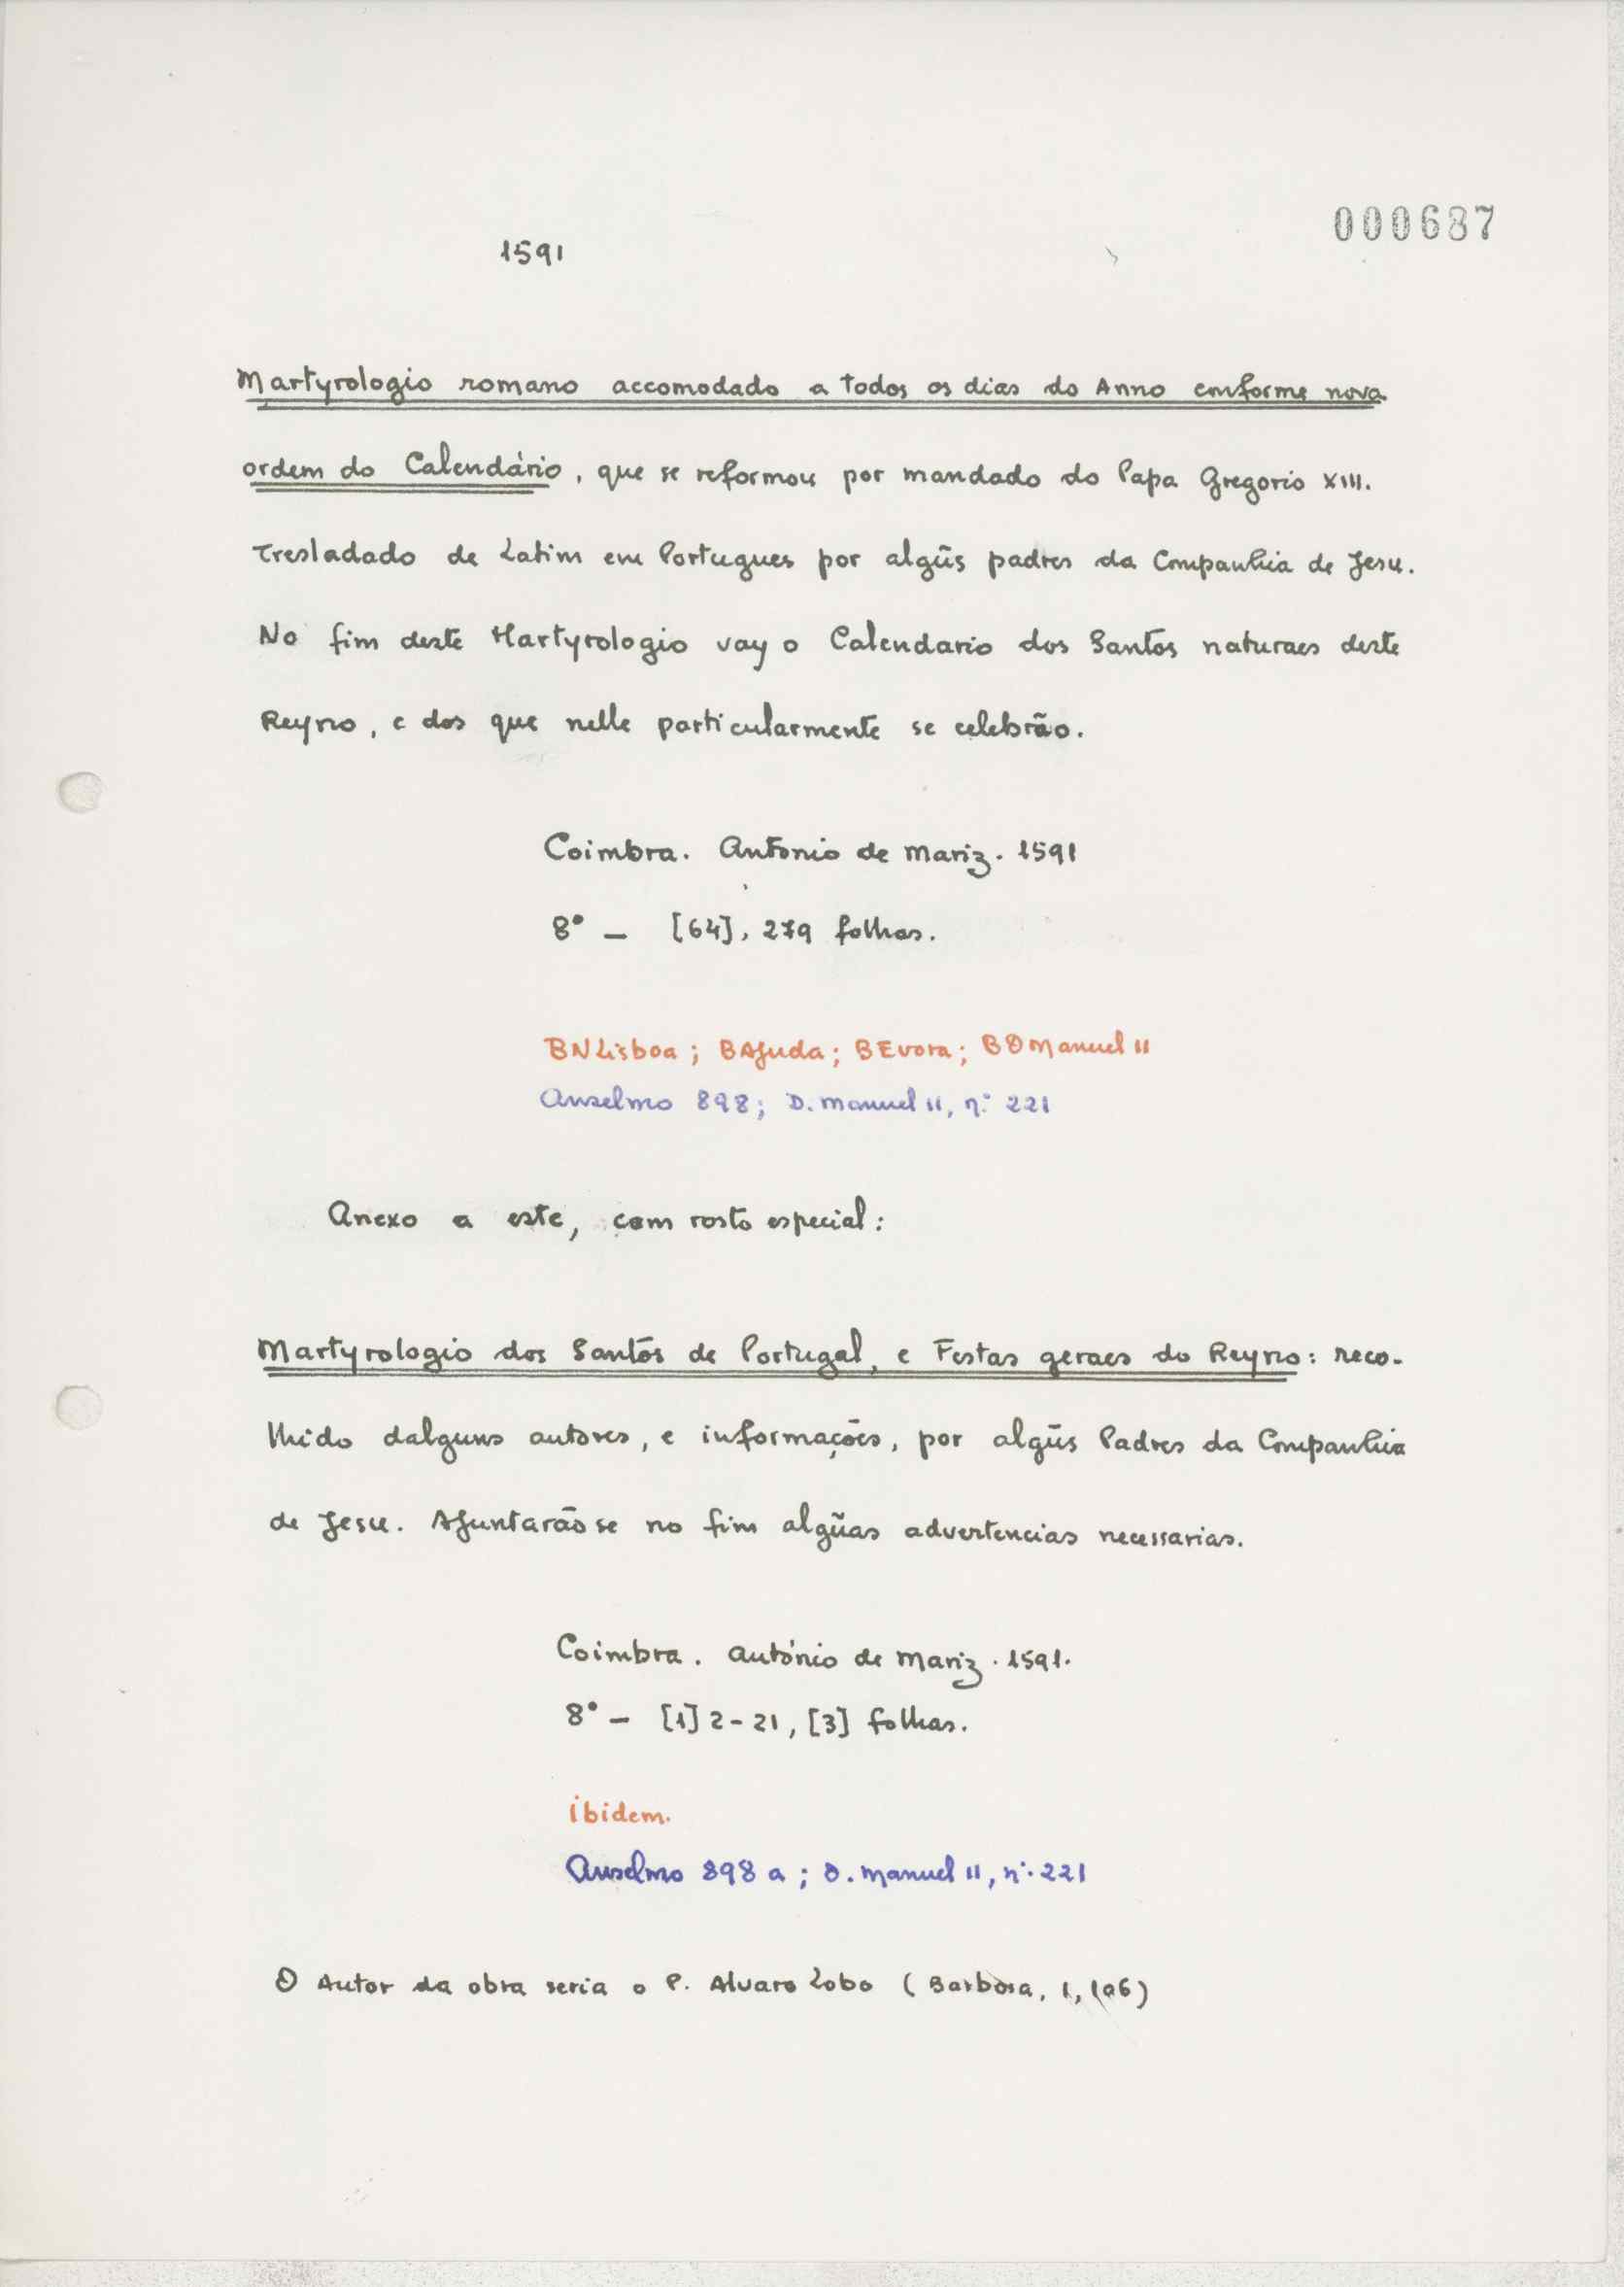 000687
1591
Martyrologio romano accomodado a todos os dias do Anno conforme nova
ordem do Calendário, que se reformou por mandado do Papa Gregorio XIII.
Tresladado de Latim em Portugues por algũs padres da Companhia de Jesu.
No fim deste Martyrologio vay o Calendario dos Santos naturaes deste
Reyno, e dos que nelle particularmente se celebrão.
Coimbra. Antonio de Mariz. 1591
8º — [64], 279 folhas.
BNLisboa; BAjuda; BEvora; BDManuel II
Anselmo 898; D. Manuel II, nº 221
Anexo a este, com rosto especial:
Martyrologio dos Santos de Portugal, e Festas geraes do Reyno: reco-
lhido dalguns autores, e informações, por algũs Padres da Companhia
de Jesu. Ajuntarãose no fim algũas advertencias necessarias.
Coimbra. António de Mariz. 1591.
8º — [1] 2-21, [3] folhas.
ibidem.
Anselmo 898 a; D. Manuel II, nº 221
O Autor da obra seria o P. Alvaro Lobo (Barbosa, I, 106)